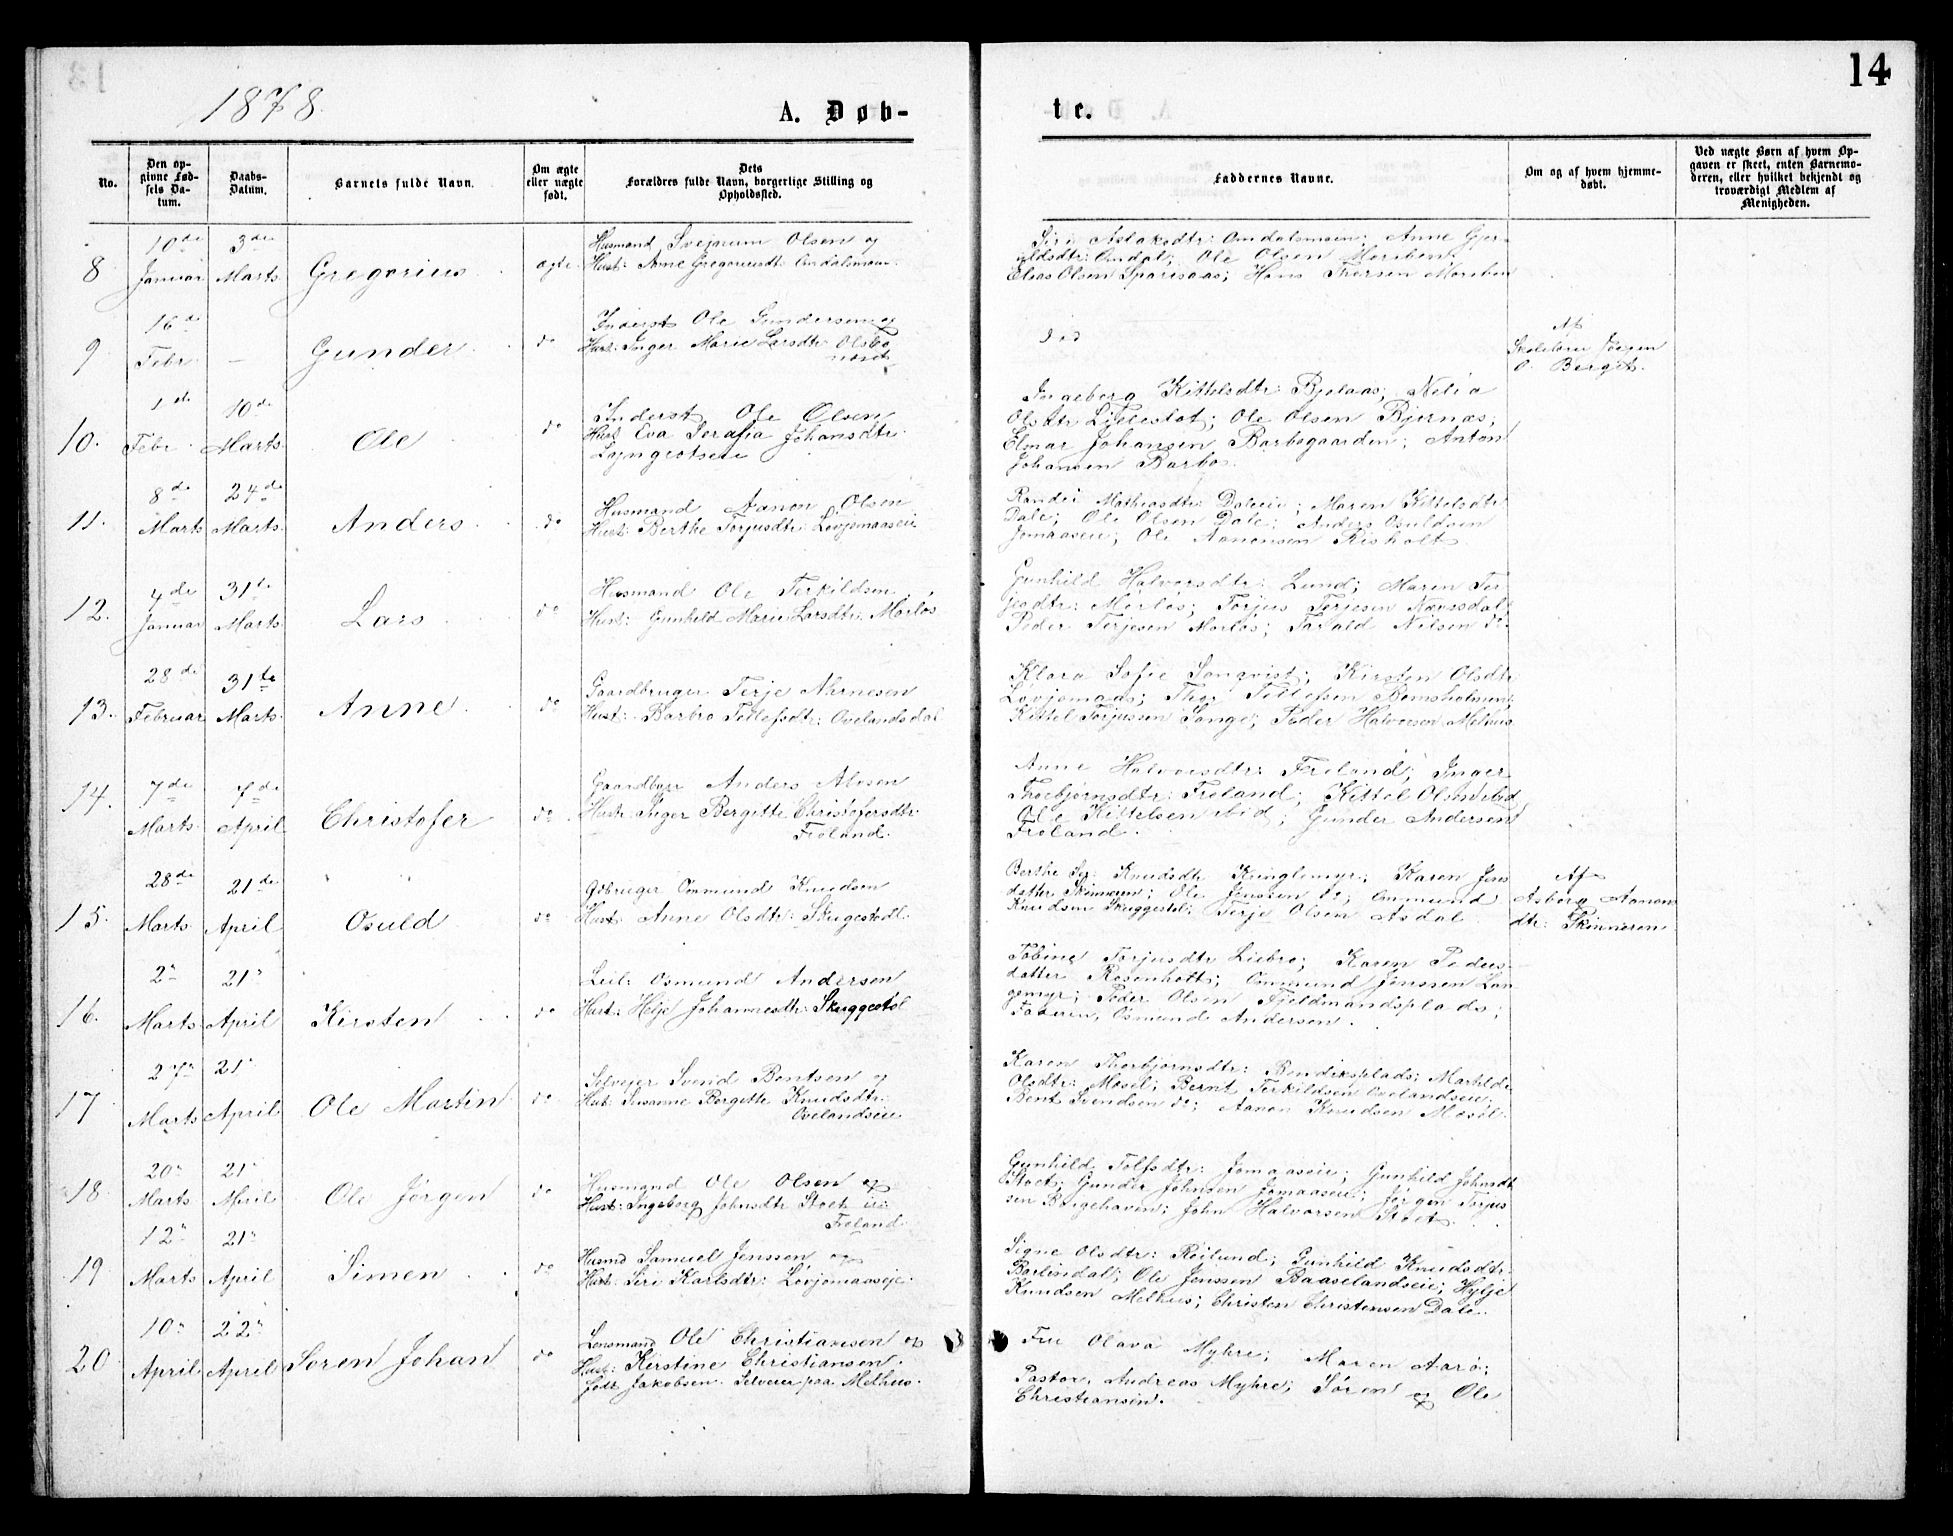 14
1878
A. Døb-
te.
No.
Den op-
givne Fød-
sels Da-
tum.
Daabs-
Datum.
Barnets fulde Navn.
Om ægte
eller uægte
født.
Dets
Forældres fulde Navn, borgerlige Stilling og
Opholdssted.
Faddernes Navne.
Om og af hvem hjemme-
døbt.
Ved uægte Børn af hvem Op-
gaven er skeet, enten Barnemo-
deren, eller hvilket bekjendt og
troværdigt Medlem af
Menigheden.
8
10de
Januar
3die
Marts
Gregorius
ægte
Husmand Svejnum Olsen og
Hust: Anne Gregoriusdt: Omdalsmoen
Siri Aslaksdtr: Omdalsmoen; Anne Gjer-
uldsdtr: Omdal; Ole Olsen Moreben;
Elias Olsen Sparsaas; Hans Thorsen Moreben
9
16de
Febr
–
Gunder
do
Inderst Ole Gundersen og
Hust: Inger Marie Larsdtr:
død
Af
Skolelærer Jörgen
O. Berget.
10.
1ste
Febr
10de
Marts
Ole
do
Inderst Ole Olsen
Hust Eva Serafia Johansdtr
Ingeborg Kittelsdtr: Bjelaas; Nelia
Olsdtr Ole Olsen Bjernæs;
Elmar Johansen Barbogaarden; Anton
Johansen Barbo.
11.
8de
Marts
24de
Marts
Anders
do
Husmand Aanon Olsen
Hust: Berthe Torjusdtr: Lovjomaaseie
Randi Mathiasdtr: Daleeie; Maren Kittelsdtr
Dale; Ole Olsen Dale; Anders Osuldsen
Jomaaseie; Ole Aanonsen Risholt.
12.
4de
Januar
31te
Marts
Lars
do
Husmand Ole Terkildsen
Hust: Gunhild Marie Larsdtr: Morløs
Gunhild Halvorsdtr: Lund; Maren Ter-
jesdtr: Morløs; Torjus Terjesen Nævesdal
Peder Terjesen Morløs; Tarald Nilsen do
13.
28de
Februar
31te
Marts
Anne
do
Gaardbruger Terje Nirnesen
Hust: Barbro Tellefsdtr: Ovelandsdal
Klara Sofie Sonqvist; Kirsten Olsdtr
Lovjomaas; Thor Tellefsen Bomsholmen;
Kittel Torjussen Songe; Peder Halvorsen Melhus
14.
7de
Marts
7de
April
Christofer
do
Gaardbgr Anders Alvsen
Hust: Inger Bergitte Christofersdtr:
Froland.
Anne Halvorsdtr: Froland; Inger
Thorbjørnsdtr: Froland; Kittel Olsen ibid
Ole Kittelsen ibid; Gunder Andersen
Froland.
15.
28de
Marts
21de
April
Osuld
do
Gdbruger Osmund Knudsen
Hust: Anne Olsdtr: Skugestøl
Berthe Knudsdtr Kringlemyr; Karen Jens
datter Skinneren; Ole Jenssen do; Osmund
Knudsen Skuggestøl; Terje Olsen Asdal
Af
Asborg Aanon
dtr: Skinneren
16.
2n
Marts
21n
April
Kirsten
do
Leil: Osmund Andersen
Hust: Helje Johannesdtr: Skuggestøl
Tobine Torjusdtr Liebro; Karen Peders-
datter Rosenholt; Osmund Jenssen Lan
gemyr; Peder Olsen Fjeldmandsplads;
Faderen, Osmund Andersen.
17
27n
Marts
21n
April
Ole Martin
do
Selvejer Svend Bentsen og
Hust: Susanne Bergitte Knudsdtr:
Ovelandseie
Karen Thorbjornsdtr: Bendiksplads; Mathilde
Olsdtr: Mesel; Bernt Terkildsen Ovelandseie;
Bent Svendsen do; Aanon Knudsen Mesel.
18
20n
Marts
21n
April
Ole Jørgen
do
Husmand Ole Olsen og
Hust: Ingeborg Johnsdtr Stoet i
Froland
Gunhild Tolfsdtr: Jomaaseie; Gunhild Johnsdt
Stoet; Gunder Johnsen Jomaaseie; Jørgen Torjus
sen Bøgehaven; John Halvorsen Stoet.
19
12n
Marts
21n
April
Simen
do
Husmd Samuel Jenssen og
Hust: Siri Karlsdtr: Lovjomaaseje.
Signe Olsdtr: Reilund; Gunhild Knudsdtr:
Barlindal; Ole Jenssen Baaselandseie; Hylje
Knudsen Melhus; Christen Christensen Dale.
20
10n
April
22n
April
Søren Johan
do
Lensmand Ole Christiansen og
Hust: Kirstine Christiansen.
født Jakobsen. Selveier paa Melhus.
Fru Olava Myhre; Maren Aarø;
Pastor, Andreas Myhre; Søren og Ole
Christiansen.